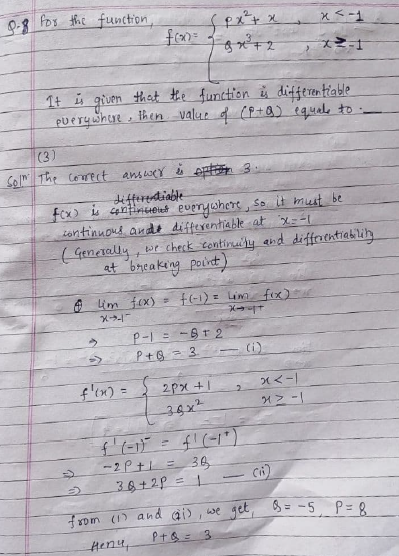 Q.8 For the function, f(x) = { px² + x , x < -1
Qx³ + 2 , x ≥ -1
It is given that the function is differentiable
everywhere, then value of (P+Q) equals to
(3)
Solⁿ The correct answer is 3.
differentiable
f(x) is continuous everywhere, so it must be
continuous and differentiable at x = -1
(Generally, we check continuity and differentiability
at breaking point)
lim f(x) = f(-1) = lim f(x)
x→-1⁻ x→-1⁺
⇒ P-1 = -Q+2
⇒ P+Q = 3 — (i)
f'(x) = { 2px + 1 , x < -1
3Qx² x ≥ -1
f'(-1)⁻ = f'(-1⁺)
⇒ -2P+1 = 3Q
⇒ 3Q+2P = 1 — (ii)
from (i) and (ii), we get, Q = -5, P = 8
Hence, P+Q = 3